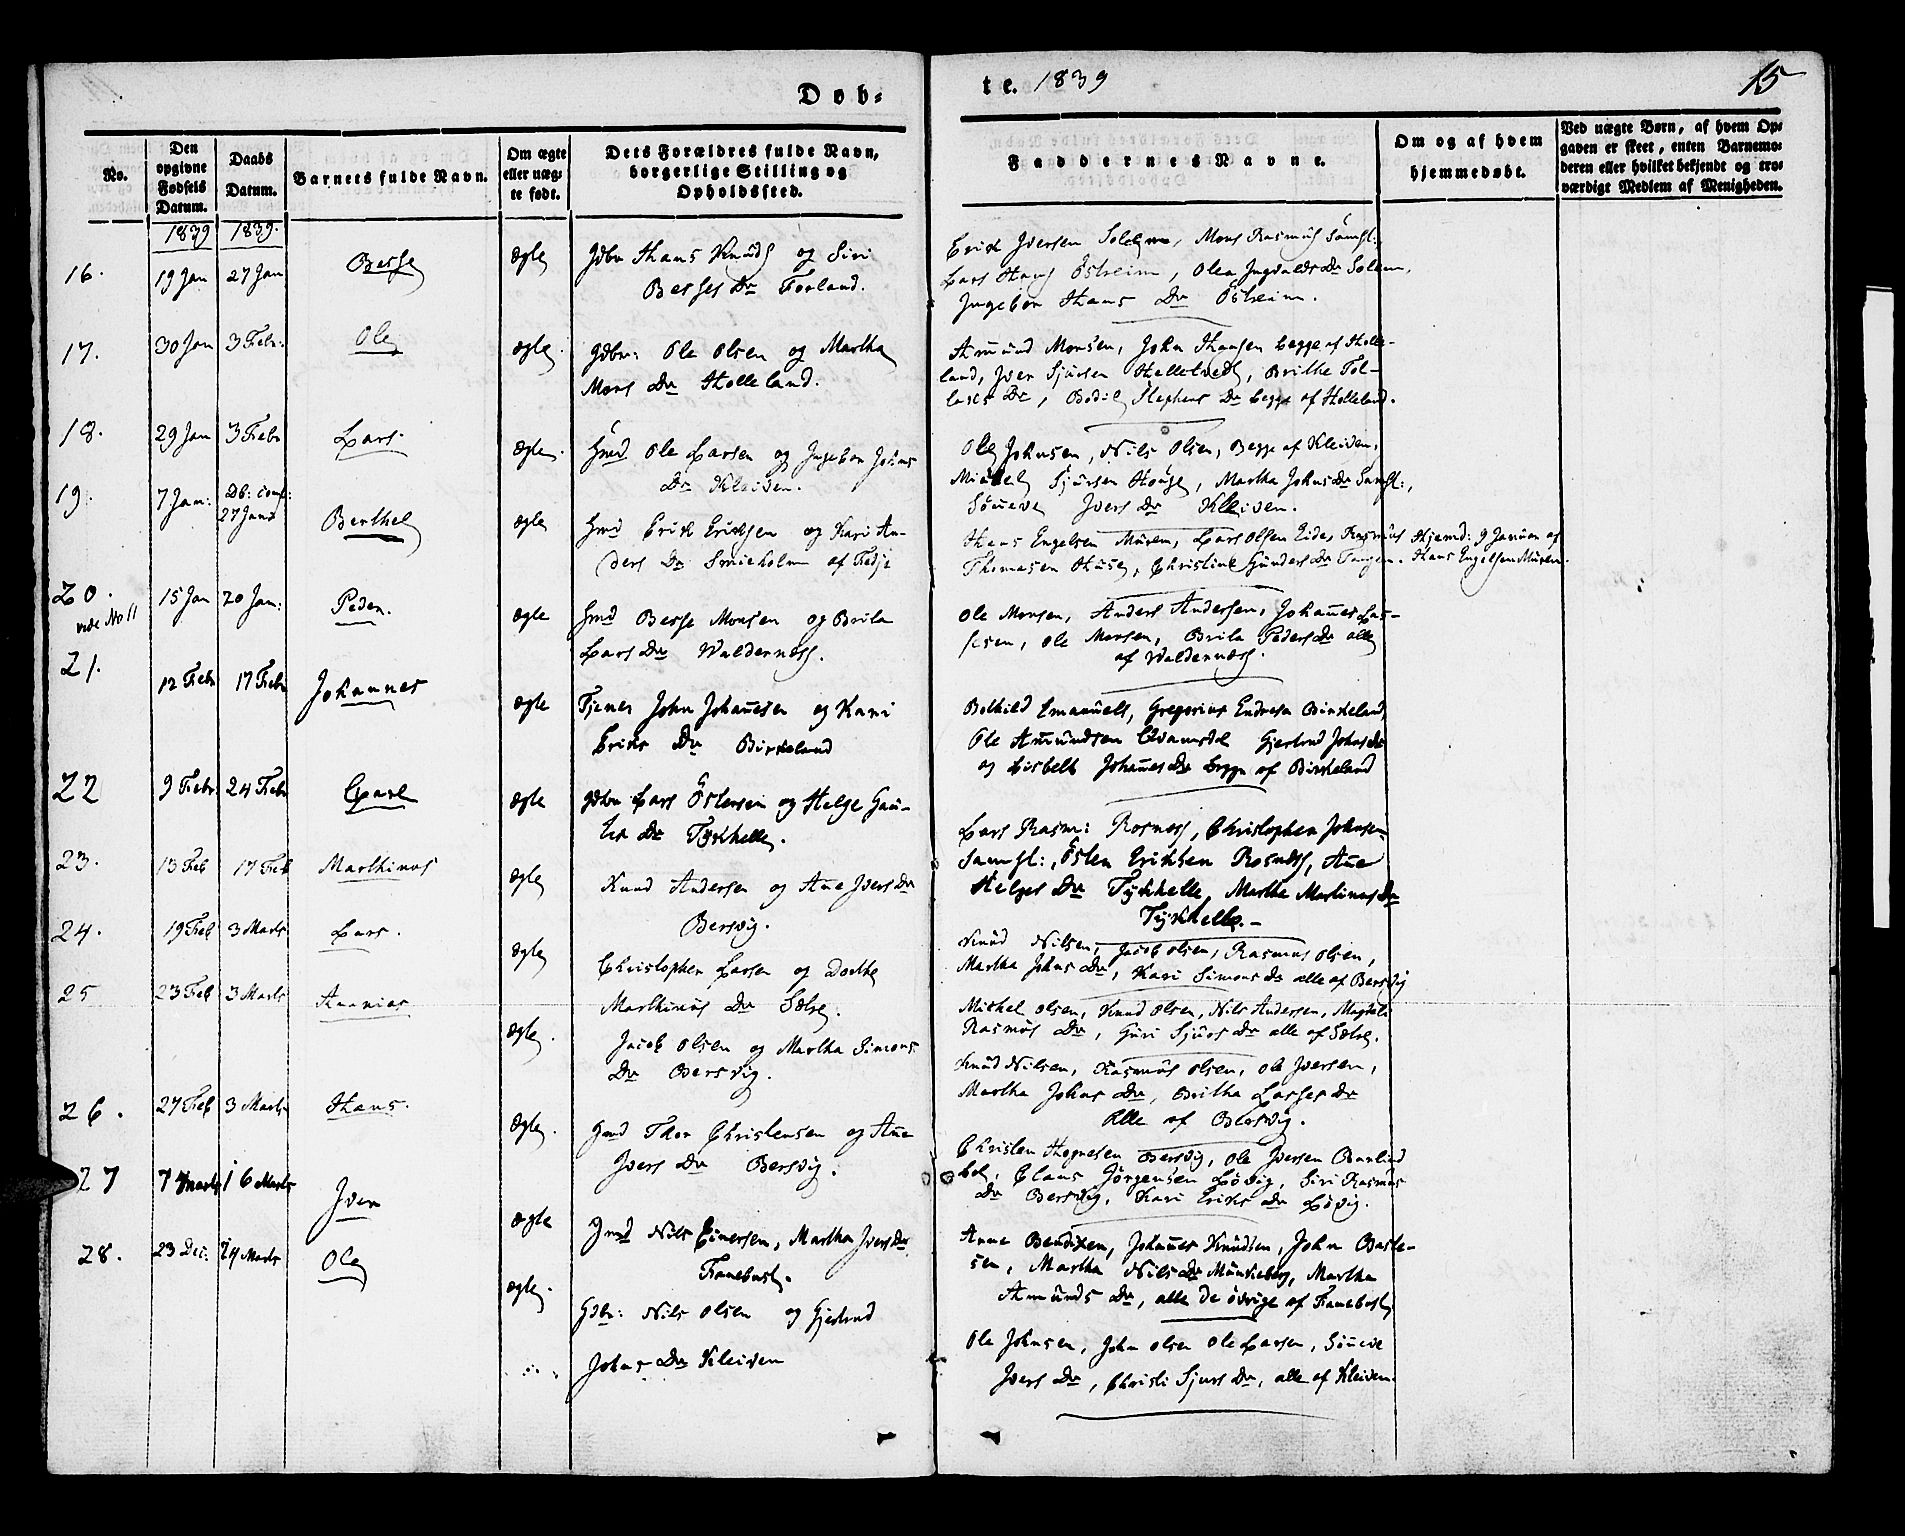 Døb-
te. 1839
15
No.
Den opgivne Fødsels Datum.
Daabs Datum.
Barnets fulde Navn.
Om ægte eller uægte født.
Dets Forældres fulde Navn, borgerlige Stilling og Opholdssted.
Faddernes Navne.
Om og af hvem hjemmedøbt.
Ved uægte Børn, af hvem Opgaven er skeet, enten Barnemoderen eller hvilket bekjendt og troværdigt Medlem af Menigheden.
1839 1839.
16. 19 Jan 27 Jan Besse ægte
Hans Knuds og Siri
Besses Dr Forland.
Erik Iversen, Mons Rasmus
Lars Hans Østreim, Olea Ingvalds Dr
Ingebor Hans Dr Østreim.
17. 30 Jan 3 Febr: Ole ægte.
Gdbr: Ole Olsen og Martha
Mons Dr Holleland.
Amund Monsen, John Hansen begge af Holle-
land, Iver Sjursen, Brithe Tol-
lases Dr, Bodil Stephens Dr begge af Holleland.
18. 29 Jan 3 Febr Lars ægte.
Hmd Ole Larsen og Ingebor Johns
Dr Kleiven.
Ole Johnsen, Nils Olsen, begge af Kleiven,
Mikkel Sjursen Houge, Martha Johns Dr Samst:,
Sønneve Ivers Dr Kleiven.
19. 7 Jan: Db: conf: 27 Janr Berthel ægte
Hmd Erik Eriksen og Kari An-
ders Dr Smieholm af Fedje
Hans Engelsen Muren, Lars Olsen Eide, Rasmus
Thomasen Huse, Christine Gunders Dr Tangen.
Hjemd: 9 Januar af
Hans Engelsen Muren.
20. vide No 11 15 Jan 20 Jan: Peder. ægte
Hmd Besse Monsen og Brita
Lars Dr Waldernæss.
Ole Monsen, Anders Andersen, Johannes Las-
sesen, Ole Monsen, Brita Peders Dr alle
af Waldernæss.
21. 12 Febr 17 Febr Johannes ægte
Tjener John Johannesen og Kari
Eriks Dr Birkeland
Bothild Emanuels, Gregorius Endresen Birkeland,
Ole Amundsen Qvamsdal Gjertrud Johns Dr
og Lisbeth Johannes Dr begge af Birkeland
22 9 Febr: 24 Febr Carl ægte
Gdbr Lars Østensen og Helge Gau-
tes Dr Tykhelle.
Lars Rasm: Rosnæss, Christopher Johnsen
Samst:, Østen Eriksen Rosnæss, Ane
Helges Dr Tykhelle, Martha Martinus Dr
Tykhelle.
23. 13 Feb 17 Feb Marthinus ægte
Knud Andersen og Ane Ivers Dr
Bersvig.
Knud Nilsen, Jacob Olsen, Rasmus Olsen,
Martha Johns Dr, Kari Simons Dr alle af Bersvig
24. 19 Feb 3 Marts Lars. ægte
Christopher Larsen og Dorthe
Marthinus Dr Sælvg.
Mikkel Olsen, Knud Olsen, Nils Andersen, Magdeli
Rasmus Dr, Guri Sjurs Dr alle af Sælvg.
25 23 Feb 3 Marts Ananias ægte.
Jacob Olsen og Martha Simons
Dr Bersvig.
Knud Nilsen, Rasmus Olsen, Ole Iversen,
Martha Johns Dr, Britha Lasses Dr
Alle af Bersvig.
26. 27 Feb 3 Marts Hans. ægte.
Gmd Thor Christensen og Ane
Ivers Dr Bersvig.
Christen Hognesen Bersvig, Ole Iversen
Claus Jørgensen Løvig, Siri Rasmus
Dr Bersvig, Kari Eriks Dr Løvig.
27 7 Marts 16 Marts Iver ægte
Gmd Nils Einersen, Martha Ivers Dr
Fanebust.
Anne Bendixen, Johannes Knudsen, John Baste-
sen, Martha Nils Dr Munkeberg, Martha
Amunds Dr, alle de øvrige af Fanebust
28. 23 Dec: 24 Marts Ole ægte.
Gdbr: Nils Olsen og Gjertrud
Johns Dr Kleiven
Ole Johnsen, John Olsen Ole Larsen, Sønneve
Ivers Dr, Christi Sjurs Dr, alle af Kleiven.